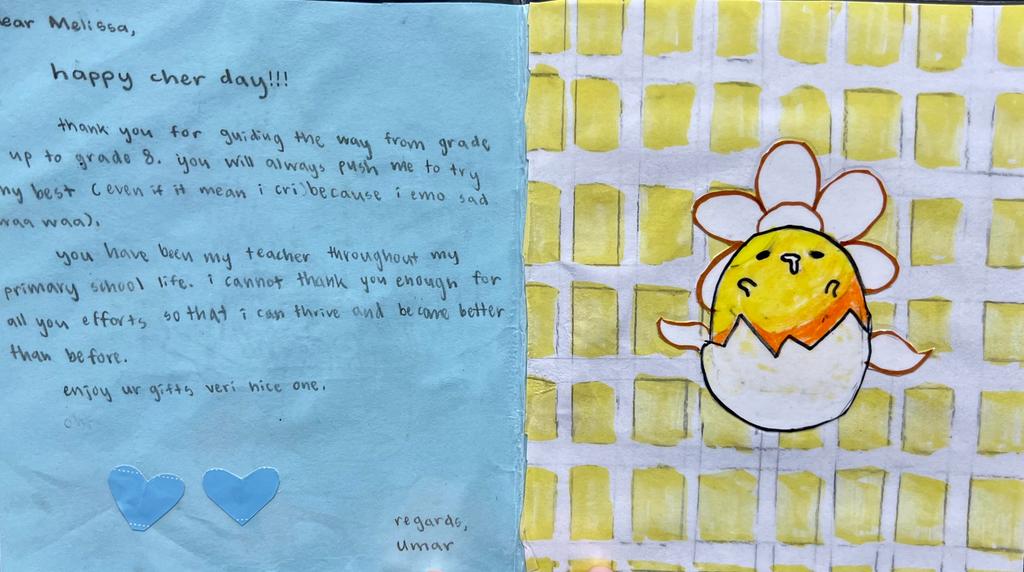 ear Melissa,
happy cher day!!!
thank you for guiding the way from grade
up to grade 8. you will always push me to try
my best (even if it mean i cri) because i emo sad
waa waa).
you have been my teacher throughout my
primary school life. i cannot thank you enough for
all you efforts so that i can thrive and become better
than before.
enjoy ur gifts veri nice one.
regards,
umar